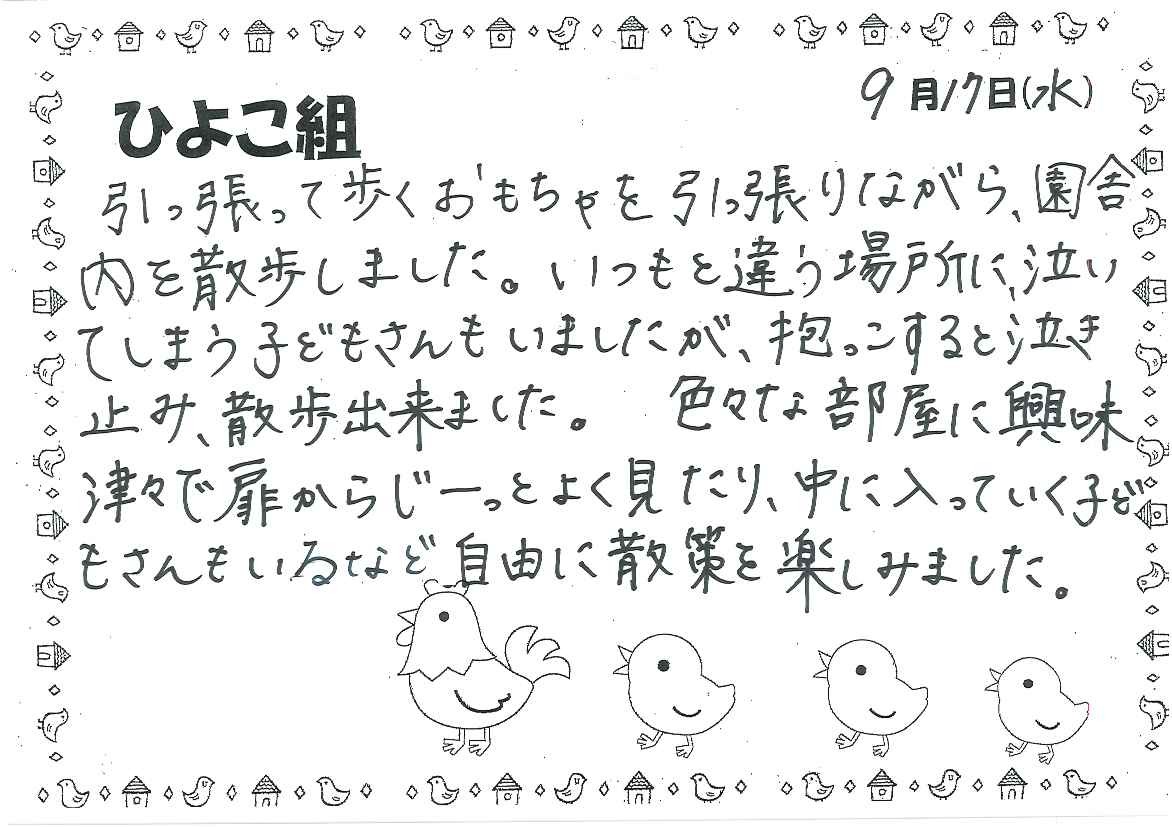 9月17日(水)
ひよこ組
引っ張って歩くおもちゃを引っ張りながら、園舎
内を散歩しました。いつもと違う場所に、泣い
てしまう子どもさんもいましたが、抱っこすると泣き
止み、散歩出来ました。 色々な部屋に興味
津々で扉からじーっとよく見たり、中に入っていく子ど
もさんもいるなど自由に散策を楽しみました。